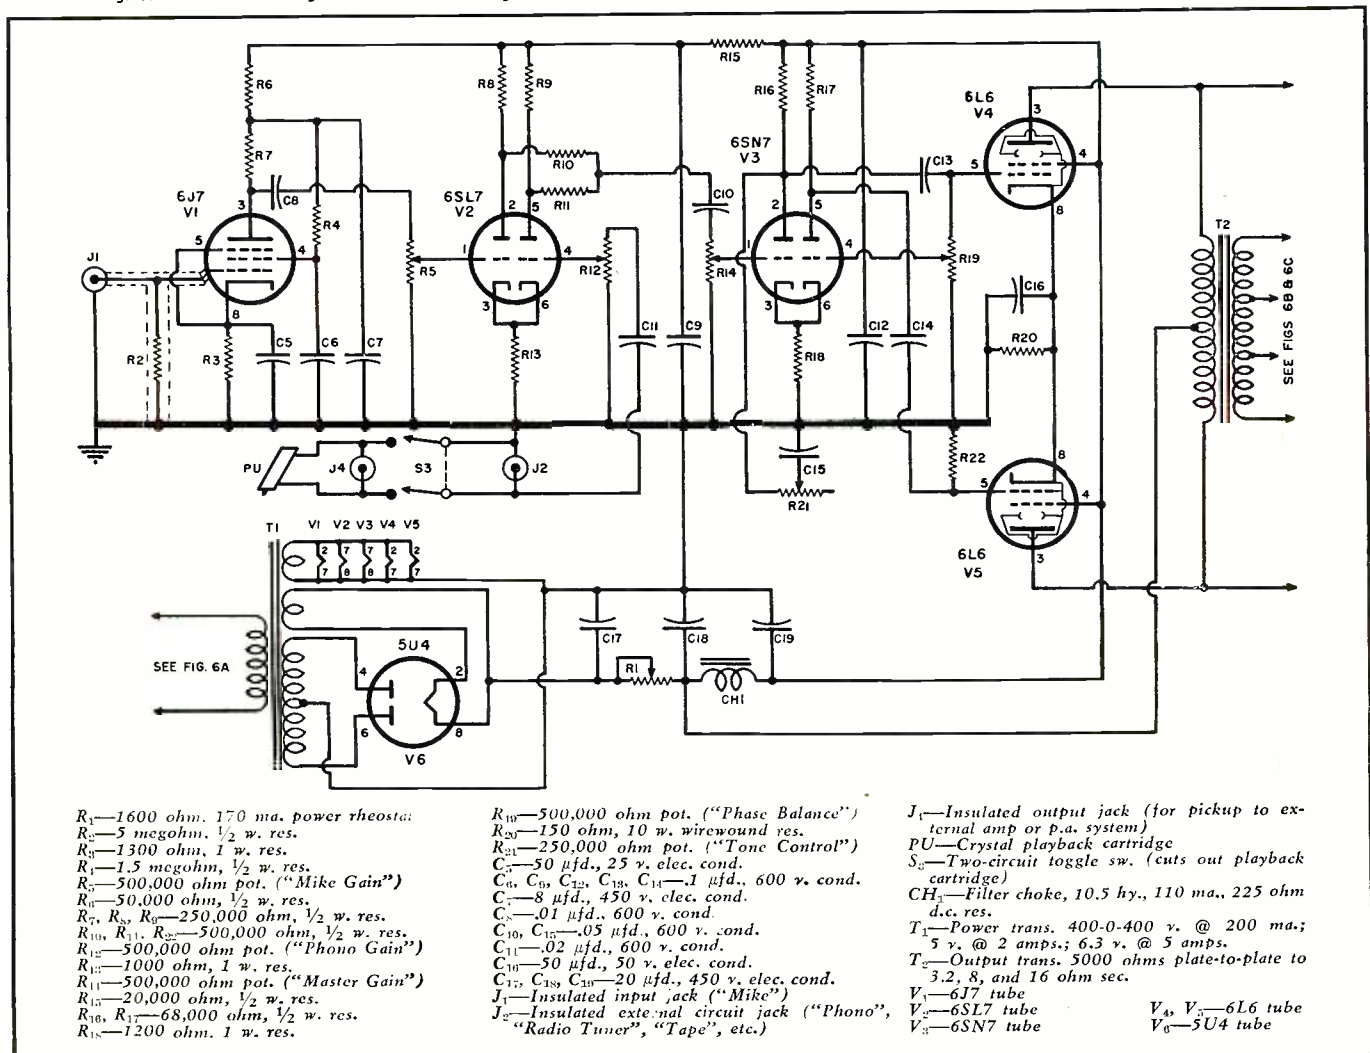 R6
R7
R8
R9
R15
R16
R17
6L6
V4
3
5
4
8
6J7
V1
3
C8
R4
5
4
8
J1
R2
R3
C5
C6
C7
R5
6SL7
V2
R10
R11
2
5
1
4
3
6
R12
R13
C11
C9
C10
R14
6SN7
V3
2
5
1
4
3
6
R18
C12
C14
C13
R19
C16
R20
T2
SEE FIGS 6B & 6C
PU
J4
S3
J2
C15
R21
R22
5
8
4
3
6L6
V5
T1
V1 V2 V3 V4 V5
2 7 7 2 2
7 8 8 7 7
SEE FIG. 6A
5U4
4
2
6
8
V6
C17
C18
C19
R1
CH1
R1—1600 ohm. 170 ma. power rheostat
R2—5 megohm, ½ w. res.
R3—1300 ohm, 1 w. res.
R4—1.5 megohm, ½ w. res.
R5—500,000 ohm pot. ("Mike Gain")
R6—50,000 ohm, ½ w. res.
R7, R8, R9—250,000 ohm, ½ w. res.
R10, R11, R22—500,000 ohm, ½ w. res.
R12—500,000 ohm pot. ("Phono Gain")
R13—1000 ohm, 1 w. res.
R14—500,000 ohm pot. ("Master Gain")
R15—20,000 ohm, ½ w. res.
R16, R17—68,000 ohm, ½ w. res.
R18—1200 ohm. 1 w. res.
R19—500,000 ohm pot. ("Phase Balance")
R20—150 ohm, 10 w. wirewound res.
R21—250,000 ohm pot. ("Tone Control")
C5—50 µfd., 25 v. elec. cond.
C6, C9, C12, C13, C14—.1 µfd., 600 v. cond.
C7—8 µfd., 450 v. elec. cond.
C8—.01 µfd., 600 v. cond.
C10, C15—.05 µfd., 600 v. cond.
C11—.02 µfd., 600 v. cond.
C16—50 µfd., 50 v. elec. cond.
C17, C18, C19—20 µfd., 450 v. elec. cond.
J1—Insulated input jack ("Mike")
J2—Insulated external circuit jack ("Phono", "Radio Tuner", "Tape", etc.)
J4—Insulated output jack (for pickup to external amp or p.a. system)
PU—Crystal playback cartridge
S3—Two-circuit toggle sw. (cuts out playback cartridge)
CH1—Filter choke, 10.5 hy., 110 ma., 225 ohm d.c. res.
T1—Power trans. 400-0-400 v. @ 200 ma.; 5 v. @ 2 amps.; 6.3 v. @ 5 amps.
T2—Output trans. 5000 ohms plate-to-plate to 3.2, 8, and 16 ohm sec.
V1—6J7 tube
V2—6SL7 tube
V3—6SN7 tube
V4, V5—6L6 tube
V6—5U4 tube